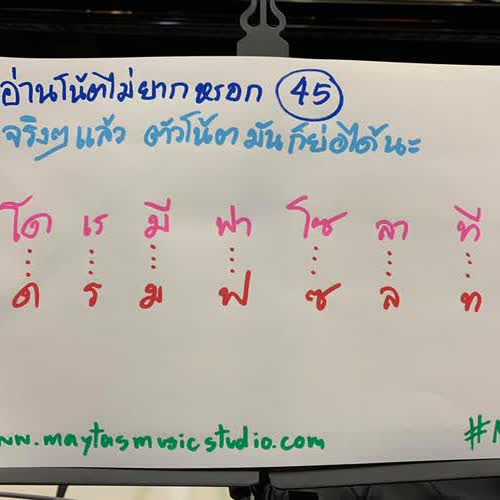 อ่านโน้ตไม่ยากหรอก 45
จริงๆ แล้ว ตัวโน้ตมันก็ย่อได้นะ
โด เร มี ฟา โซ ลา ที
ด ร ม ฟ ซ ล ท
ww.maytasmusicstudio.com